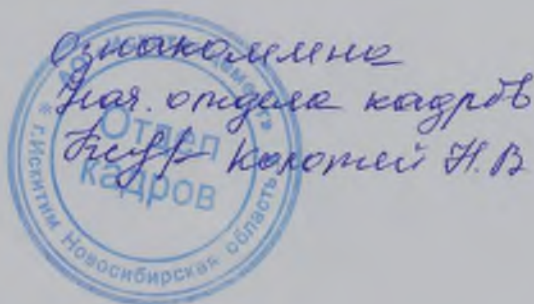 Ознакомлена
Нач. отдела кадров
Коротей Н.В
Отдел
кадров
* г.Искитим Новосибирская область *